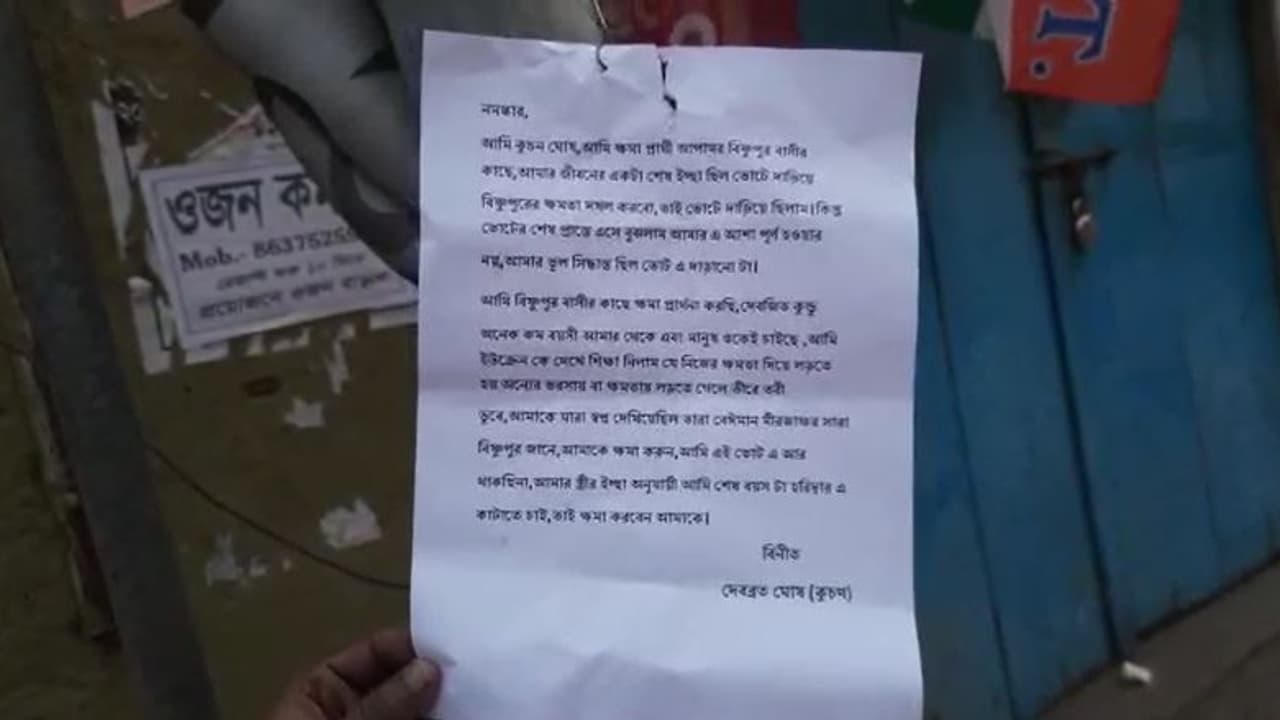 নমস্কার,
আমি কুচন ঘোষ,আমি ক্ষমা প্রার্থী আপামর বিষ্ণুপুর বাসীর
কাছে,আমার জীবনের একটা শেষ ইচ্ছা ছিল ভোটে দাড়িয়ে
বিষ্ণুপুরের ক্ষমতা দখল করবো,তাই ভোটে দাড়িয়ে ছিলাম।কিন্তু
ভোটের শেষ প্রান্তে এসে বুঝলাম আমার এ আশা পূর্ণ হওয়ার
নয়,আমার ভুল সিদ্ধান্ত ছিল ভোট এ দাড়ানো টা।
আমি বিষ্ণুপুর বাসীর কাছে ক্ষমা প্রার্থনা করছি,দেবজিত কুন্ডু
অনেক কম বয়সী আমার থেকে এবং মানুষ ওকেই চাইছে ,আমি
ইউক্রেন কে দেখে শিক্ষা নিলাম যে নিজের ক্ষমতা দিয়ে লড়তে
হয় অন্যের ভরসায় বা ক্ষমতায় লড়তে গেলে তীরে তরী
ডুবে,আমাকে যারা স্বপ্ন দেখিয়েছিল তারা বেঈমান মীরজাফর সারা
বিষ্ণুপুর জানে,আমাকে ক্ষমা করুন,আমি এই ভোট এ আর
থাকছিনা,আমার স্ত্রীর ইচ্ছা অনুযায়ী আমি শেষ বয়স টা হরিদ্বার এ
কাটাতে চাই,তাই ক্ষমা করবেন আমাকে।
বিনীত
দেবব্রত ঘোষ (কুচণ)
ওজন
Mob.- 8637525
প্রয়োজনে ওজন
T.